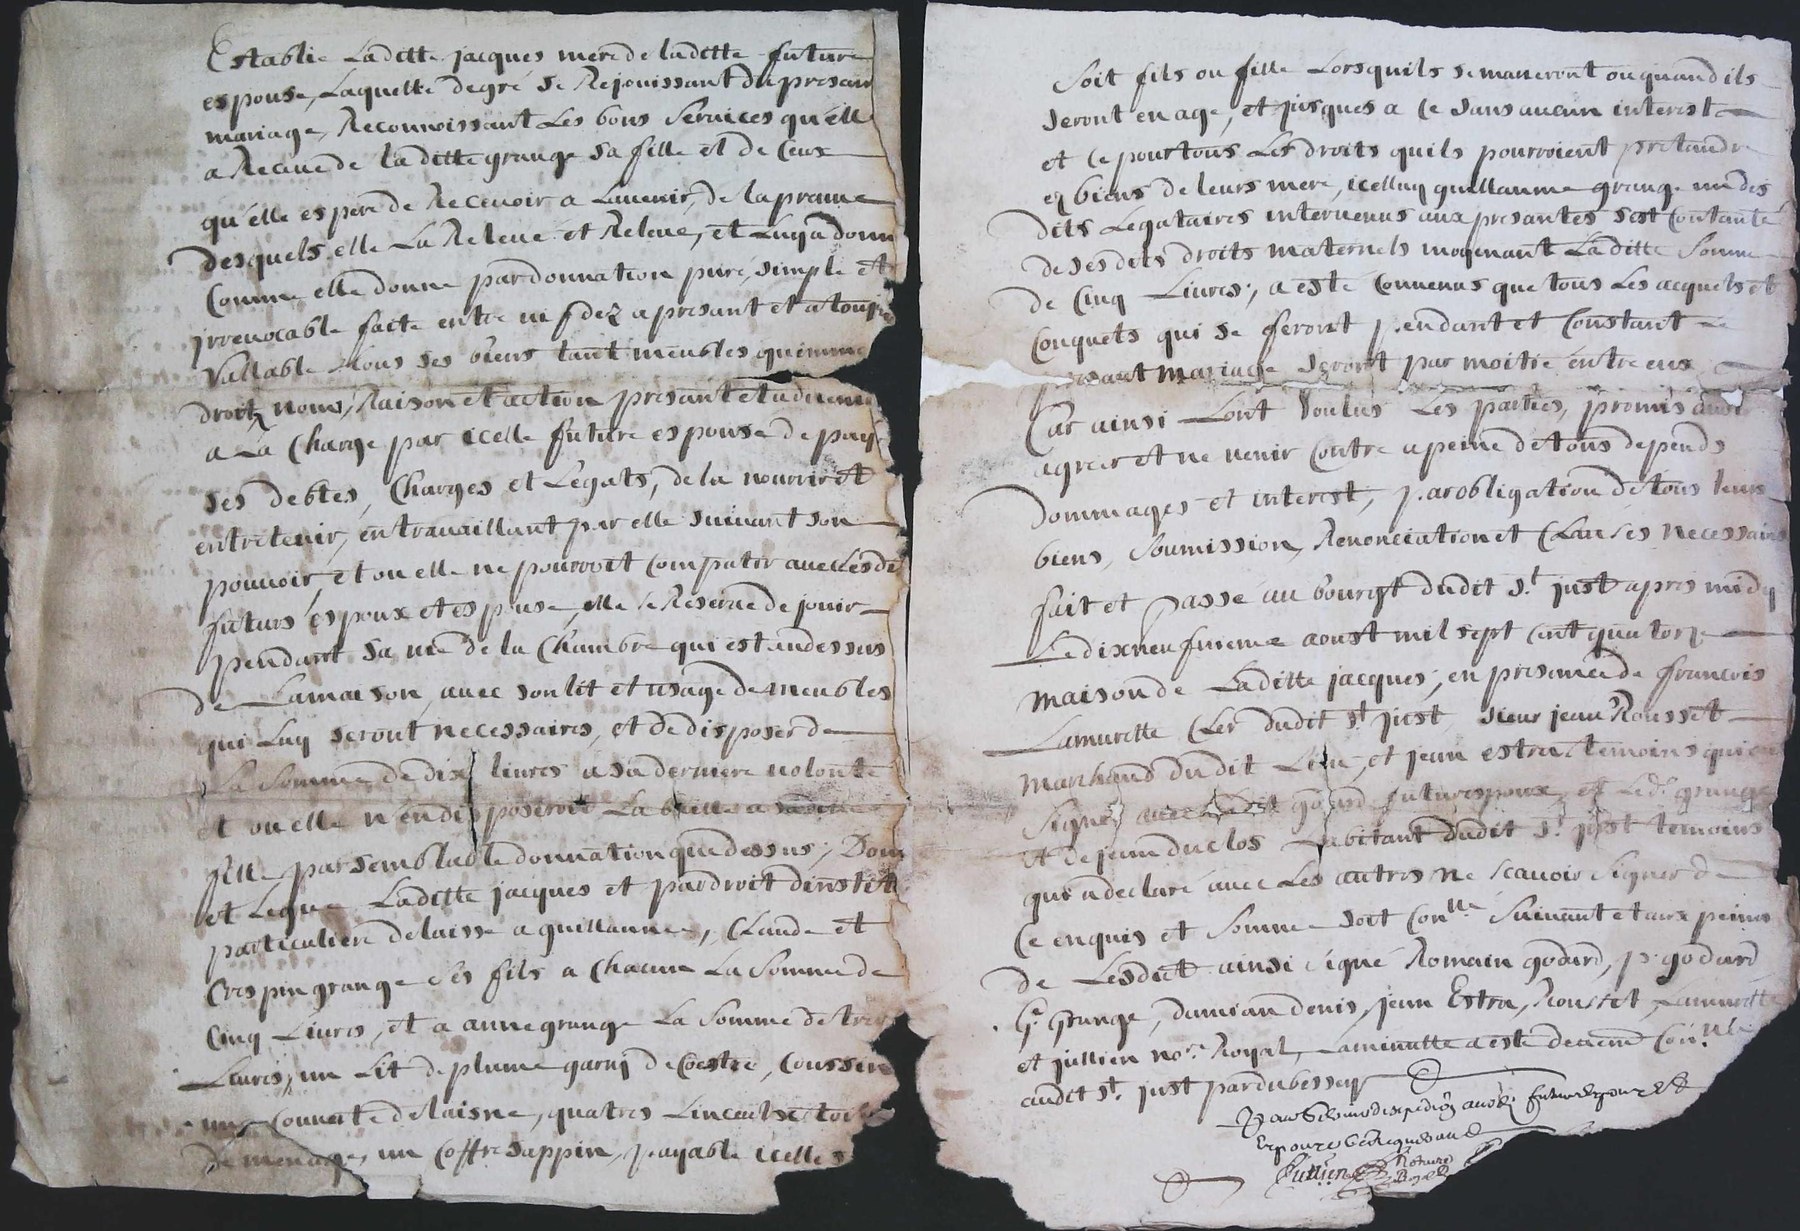 Establie Laditte jacques mere de laditte future
espouse, Laquelle de gré se Rejouissant du presan
mariage, Reconnoissant Les bons Services qu'elle
a Receue de laditte grange sa fille et de Ceux
qu'elle espere de Recevoir a Lavenir, de la preuve
desquels elle La Releve et Releve, et Luy a donn
Comme elle donne par donnation pure, simple et
jrrevocable faite entre vifs a presant et a toujrs
Vallable tous ses biens tant meubles quimme
droitz noms, Raison et action presant et advenir
a La Charge par icelle future espouse de paye
ses debtes, Charges et Legats, de la nourrir et
entretenir, en travaillant par elle suivant son
pouvoir, et ou elle ne pourroit Compatir avec Lesd
futurs espoux et espouse, elle se Reserve de jouir
pendant sa vie de la Chambre qui est au dessus
de La maison, avec son lit et usage de meubles
qui Luy seront necessaires, et de disposer de
La Somme de dix livres a sa derniere volonté
et ou elle n'en disposeroit La baille a saditte
fille par semblable donnation que dessus; Donne
et Legue Laditte jacques et par droit d'instit
particuliere delaisse a guillaume, Claude et
Crespin grange ses fils a Chacun La Somme de
Cinq Livres, et a anne grange La Somme de trois
Livres, un Lit de plume garny de Coestre, Coussin
une Couverte de laisne, quatres Linceulx toille
de menage, un Coffre sappin, payable icelles
Soit fils ou fille Lorsquils se marieront ou quand ils
seront en age, et jusques a Ce sans aucun interest
et Ce pour tous Les droits quils pourroient pretandre
es biens de leurs mere, icelluy guillaume grange un des
dits Legataires intervenus aux presantes s'est Contanté
de ses dits droits maternels moyenant Laditte Somme
de Cinq Livres; a esté Convenus que tous Les acquets et
Conquets qui se feront pendant et Constant Le
presant mariage seront par moitié entre eux
Car ainsi L'ont Voulus Les parties, promis avoir
agreer et ne venir Contre a peine de tous depends
dommages et interest, par obligation de tous leurs
biens, Soumission, Renonciation et Clauses necessaires
fait et passé au bourgt dudit St. just apres midy
Le dix neufvieme aoust mil sept cent quatorze
maison de Laditte jacques; en presance de francois
Lamurette Cler dudit St just, sieur jean Rousset
marchand dudit Lieu, et jean estra temoins qui ont
Signé avec Ledit godard futur espoux, et Led. grange
et de jean duclos habitant dudit St. just temoins
qui a declaré avec Les autres ne scavoir Signer de
Ce enquis et Sommé soit Conlle. Suivant et aux peines
de Lesdict ainsi Signé Romain godard, p. godard
G. Grange, damian denis, jean Estra, Rousset, Lamurette
et jullien nore. Royal, La minutte a esté deuement Conlle
audit St. just par dubessey
Par Extrait dexpedition audit futur Espoux et
Espouse Ce Requerant
Jullien Notaire
Royal